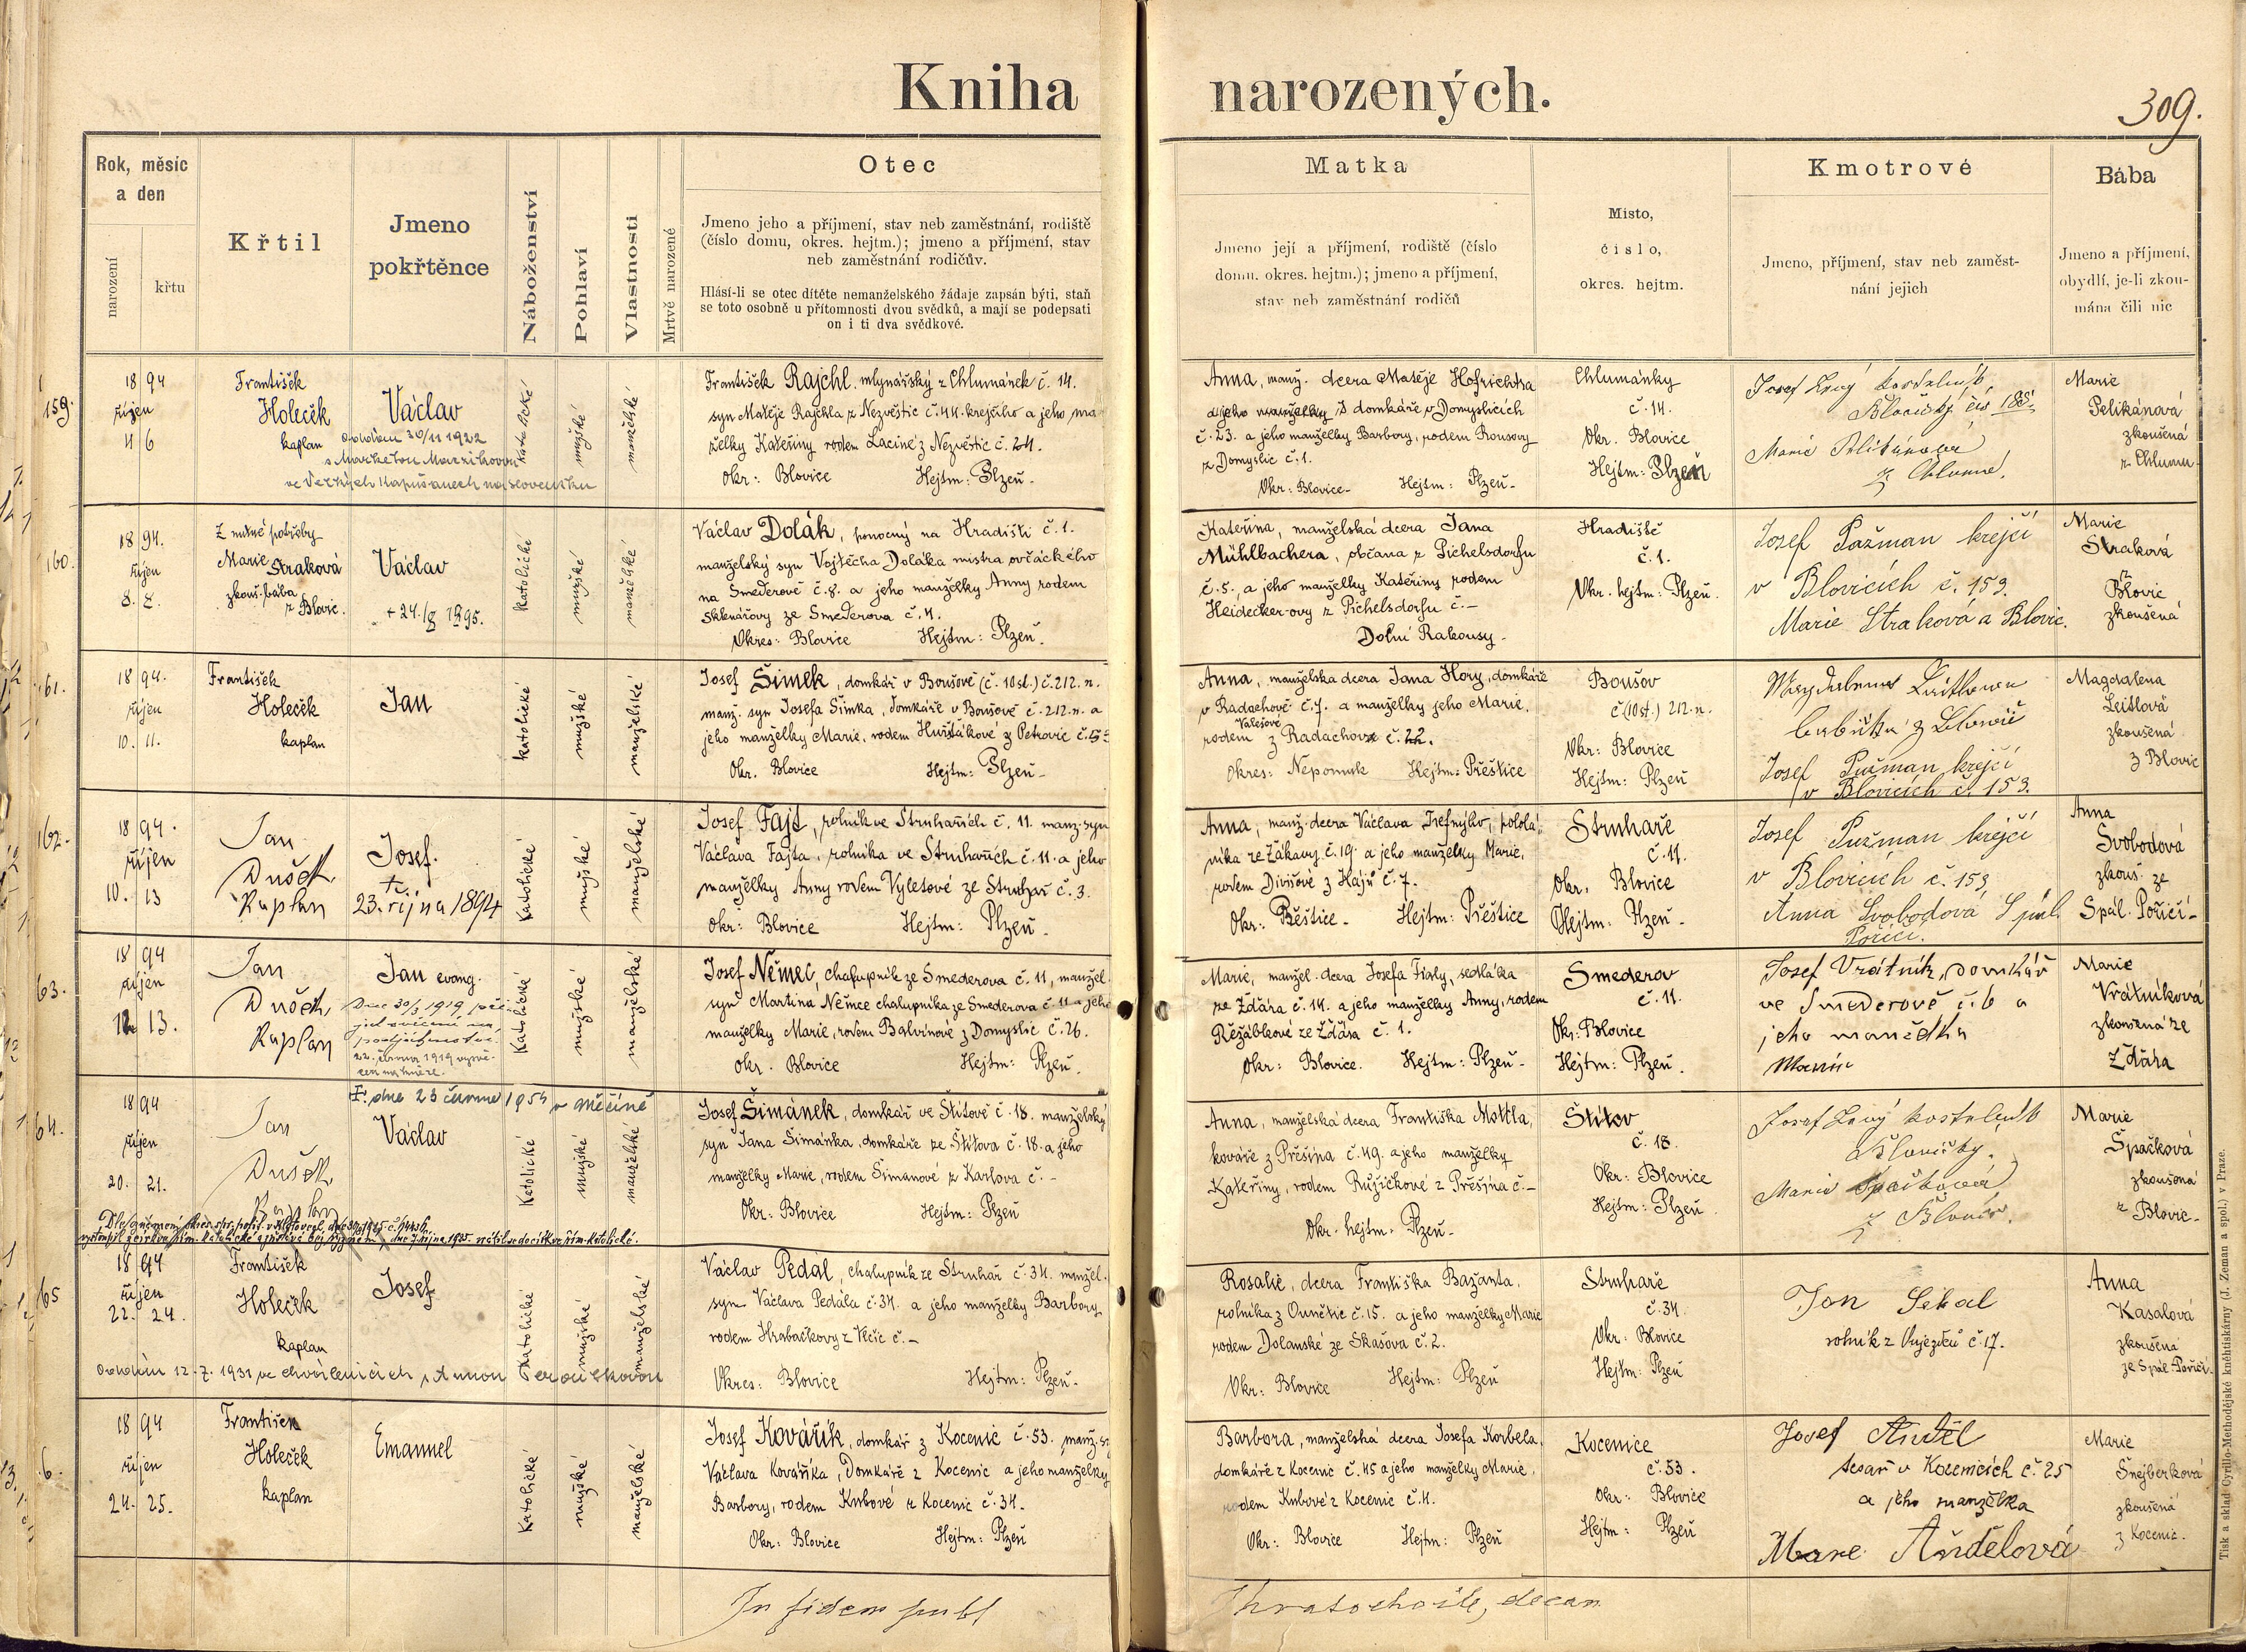 Kniha narozených.
309.
Rok, měsíc
a den
narození
křtu
Křtil
Jmeno
pokřtěnce
Náboženství
Pohlaví
Vlastnosti
Mrtvě narozené
Otec
Jmeno jeho a příjmení, stav neb zaměstnání, rodiště
(číslo domu, okres. hejtm.); jmeno a příjmení, stav
neb zaměstnání rodičův.
Hlásí-li se otec dítěte nemanželského žádaje zapsán býti, staň
se toto osobně u přítomnosti dvou svědků, a mají se podepsati
on i ti dva svědkové.
Matka
Jmeno její a příjmení, rodiště (číslo
domu. okres. hejtm.); jmeno a příjmení,
stav neb zaměstnání rodičů
Misto,
číslo,
okres. hejtm.
Kmotrové
Jmeno, příjmení, stav neb zaměst-
nání jejich
Bába
Jmeno a příjmení,
obydlí, je-li zkou-
mána čili nic
159.
18 94
říjen
4 6
František
Holeček
kaplan
Václav
oddán 30/11 1922
s Marketou
ve Velkých Kapušanech na Slovensku
katolické
mužské
manželské
František Rajchl. mlynářský z Chlumánek č. 14.
syn Matěje Rajchla z Nezvěstic č. 44. krejčího a jeho man
želky Kateřiny rodem Laciné z Nezvěstic č. 24.
Okr: Blovice Hejtm: Plzeň-
Anna, manž. dcera Matěje Hofrichtra
domkáře v Domyslicích
č. 23. a jeho manželky Barbory, rodem Rousovy
z Domyslic č. 1.
Okr: Blovice- Hejtm: Plzeň-
Chlumánky
č. 14.
Okr. Blovice
Hejtm: Plzeň
Josef
Marie Pelikánová
z Chlumu
Marie
Pelikánová
zkoušená
z Chlumu.
160.
18 94.
říjen
8. 8.
Z nutné potřeby
Marie Straková
zkouš. bába
z Blovic.
Václav
+ 24./8 1895.
katolické
mužské
manželské
Václav Dolák, ponocný na Hradišti č. 1.
manželský syn Vojtěcha Doláka mistra ovčáckého
na Smeďerově č. 8. a jeho manželky Anny rodem
Sklenářovy ze Smeďerova č. 4.
Okres: Blovice Hejtm: Plzeň.
Kateřina, manželská dcera Jana
Mühlbachera, občana z Pichelsdorfu
č. 5., a jeho manželky Kateřiny rodem
Heidecker-ovy z Pichelsdorfu č.-
Dolní Rakousy-
Hradiště
č. 1.
Okr. hejtm: Plzeň.
Josef Pužman krejčí
v Blovicích č. 153.
Marie Straková a Blovic.
Marie
Straková
z
Blovic
zkoušená
61.
18 94.
říjen
10. 11.
František
Holeček
kaplan
Jan
katolické
mužské
manželské
Josef Šimek, domkář v Boušově (č. 10 st.) č. 212. n.
manž. syn Josefa Šimka, domkáře v Boušově č. 212. n. a
jeho manželky Marie, rodem Huršákové z Petrovic č.
Okr. Blovice Hejtm: Plzeň-
Anna, manželska dcera Jana Hory, domkáře
v Radachově č. 7. a manželky jeho Marie,
Valešové
rodem z Radachova č. 22.
Okres: Nepomuk Hejtm: Přeštice
Boušov
č. (10 st.) 212. n.
Okr: Blovice
Hejtm: Plzeň
Magdalena Leitlova
babička z Blovic
Josef Pužman krejčí
v Blovicích č. 153.
Magdalena
Leitlová
zkoušená
z Blovic
162.
18 94.
říjen
10. 13
Jan
Dušek
Kaplan
Josef.
+
23. října 1894
Katolické
mužské
manželské
Josef Fajt, rolník ve Struhařích č. 11. manž. syn
Václava Fajta, rolníka ve Struhařích č. 11. a jeho
manželky Anny rodem Vyletové ze Struhař č. 3.
Okr: Blovice Hejtm: Plzeň-
Anna, manž. dcera Václava Trefného, polola-
níka ze Žákavy č. 19. a jeho manželky Marie,
rodem Divišové z Hájů č. 7.
Okr: Přeštice- Hejtm: Přeštice
Struhaře
č. 11.
Okr. Blovice
Hejtm: Plzeň-
Josef Pužman krejčí
v Blovicích č. 153
Anna Svobodová Spál.
Poříčí.
Anna
Svobodová
zkouš. ze
Spál. Poříčí-
63.
18 94
říjen
12 13.
Jan
Dušek
Kaplan
Jan evang.
Dne 30/3 1919 při-
jal svěcení na
podjáhenství.
22. června 1919 vysvě-
cen na kněze.
Katolické
mužské
manželské
Josef Němec, chalupník ze Smederova č. 11, manžel.
syn Martina Němce chalupníka ze Smederova č. 11. a jeho
manželky Marie, rodem Balvínové z Domyslic č. 26.
Okr. Blovice Hejtm: Plzeň.
Marie, manžel. dcera Josefa Fialy, sedláka
ze Žďára č. 14. a jeho manželky Anny, rodem
Řežábkové ze Žďára č. 1.
Okr: Blovice. Hejtm: Plzeň-
Smederov
č. 11.
Okr: Blovice
Hejtm: Plzeň.
Josef Vrátník, domkář
ve Smeďerově č. 6 a
jeho manželka
Marie
Marie
Vrátníková
zkoušená ze
Žďára
64.
18 94
říjen
20. 21.
Jan
Dušek
Kaplan
†. dne 23 června 1954 v Měčíně
Václav
Katolické
mužské
manželské
Josef Šimánek, domkář ve Štítově č. 18. manželský
syn Jana Šimánka, domkáře ze Štítova č. 18. a jeho
manželky Marie, rodem Šimanové z Karlova č.-
Okr: Blovice Hejtm: Plzeň
Anna, manželská dcera Františka Mottla,
kováře z Přešína č. 49. a jeho manželky
Kateřiny, rodem Růžičkové z Přešína č.-
Okr. hejtm. Plzeň-
Štítov
č. 18.
Okr: Blovice
Hejtm: Plzeň
Josef
Marie Špačková
z Blovic.
Marie
Špačková
zkoušená
z Blovic-
65
18 94
říjen
22. 24.
František
Holeček
kaplan
Josef
Katolické
mužské
manželské
Oddán 12. 7. 1931 ve Chválenicích s Annou
Václav Pedál, chalupník ze Struhař č. 34. manžel.
syn Václava Pedála č. 34. a jeho manželky Barbory
rodem Hrabačkovy z Vlčic č.-
Okres: Blovice Hejtm: Plzeň-
Rosalie, dcera Františka Bažanta,
rolníka z Ounětic č. 15. a jeho manželky Marie
rodem Dolanské ze Skašova č. 2.
Okr: Blovice Hejtm: Plzeň
Struhaře
č. 34.
Okr: Blovice
Hejtm: Plzeň
Jan Sekal
rolník z Oujezdů č 17.
Anna
Kasalová
zkoušená
ze Spál. Poříčí.
6.
18 94
říjen
24. 25.
František
Holeček
kaplan
Emanuel
Katolické
mužské
manželské
Josef Kovářík, domkář z Kocenic č. 53. manž. sy
Václava Kováříka, Domkáře z Kocenic a jeho manželky
Barbory, rodem Kubové z Kocenic č. 34.
Okr: Blovice Hejtm: Plzeň
Barbora, manželská dcera Josefa Korbela,
domkáře z Kocenic č. 45 a jeho manželky Marie,
rodem Kubové z Kocenic č. 4.
Okr: Blovice Hejtm: Plzeň
Kocenice
č. 53.
Okr: Blovice
Hejtm: Plzeň
Josef Anděl
tesař v Kocenicích č. 25
a jeho manželka
Marie Andělová
Marie
Šnejberková
zkoušená
z Kocenic.
In fidem publ
Kratochvíle, decan
Tisk a sklad Cyrillo-Methodějské knéhtiskárny (J. Zeman a spol.) v Praze.